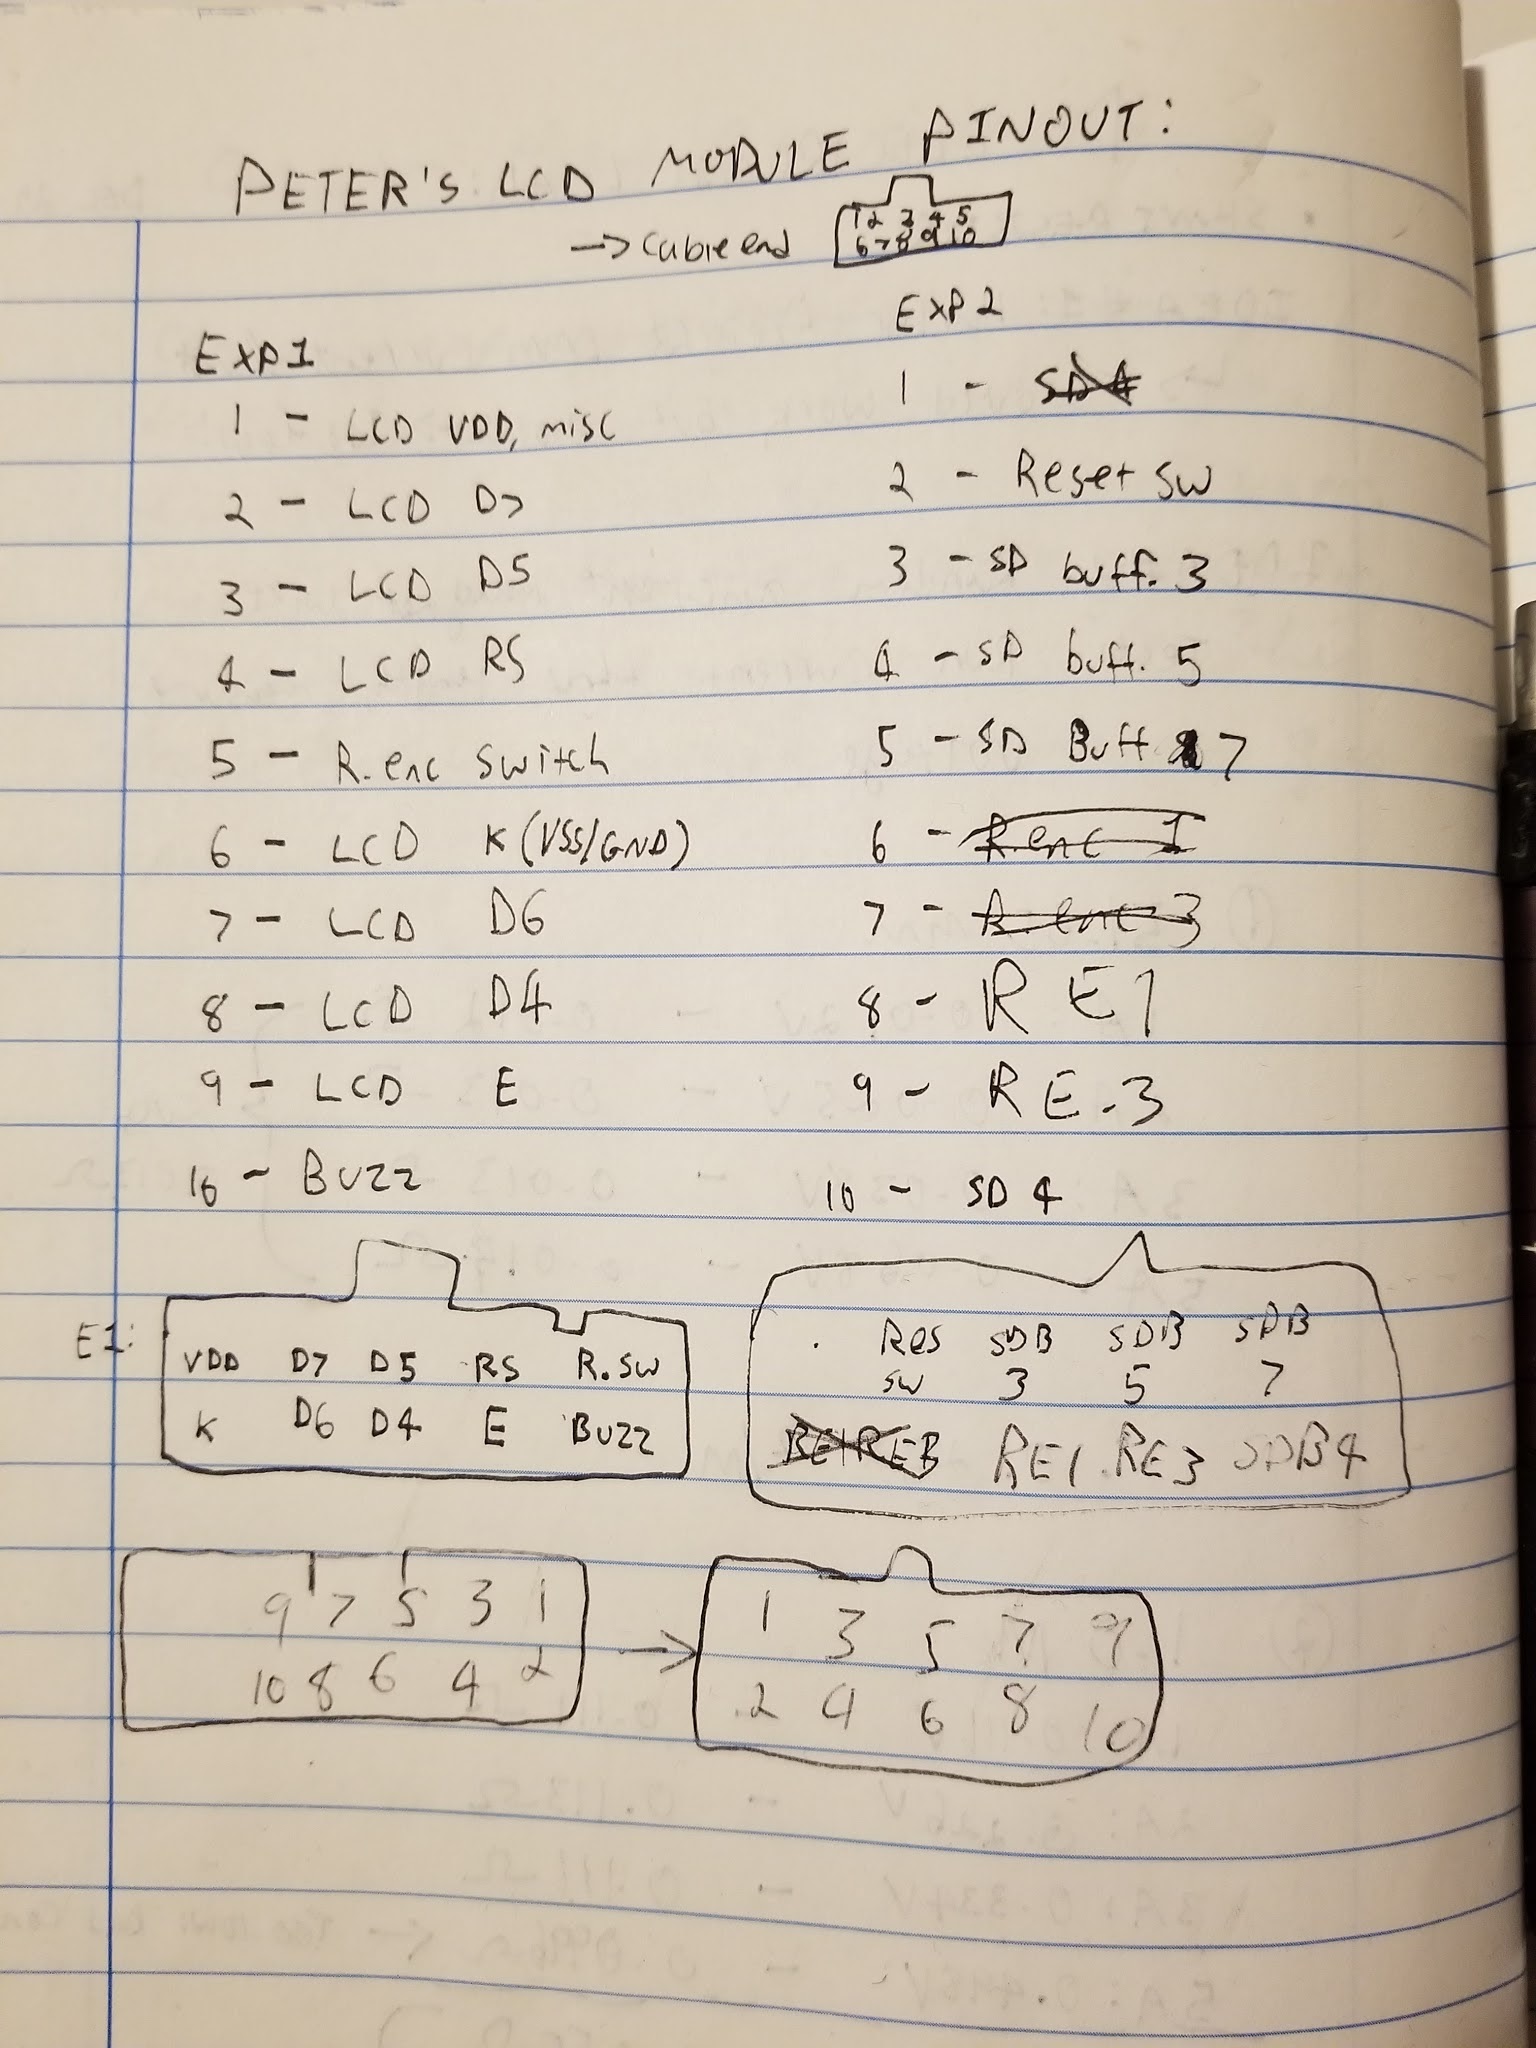 PETER'S LCD MODULE PINOUT:
→ Cable end
1 2 3 4 5
6 7 8 9 10
EXP1
1 - LCD VDD, misc
2 - LCD D7
3 - LCD D5
4 - LCD RS
5 - R.enc switch
6 - LCD K (VSS/GND)
7 - LCD D6
8 - LCD D4
9 - LCD E
10 - BUZZ
EXP2
1 - SD 4
2 - Reset SW
3 - SD buff. 3
4 - SD buff. 5
5 - SD Buff 7
6 - R.enc 1
7 - R.enc 3
8 - RE1
9 - RE.3
10 - SD 4
E1:
VDD D7 D5 RS R.SW
K D6 D4 E BUZZ
. Res SDB SDB SDB
SW 3 5 7
RE1 RE3 RE1 RE3 SDB4
9 7 5 3 1
10 8 6 4 2
→
1 3 5 7 9
2 4 6 8 10